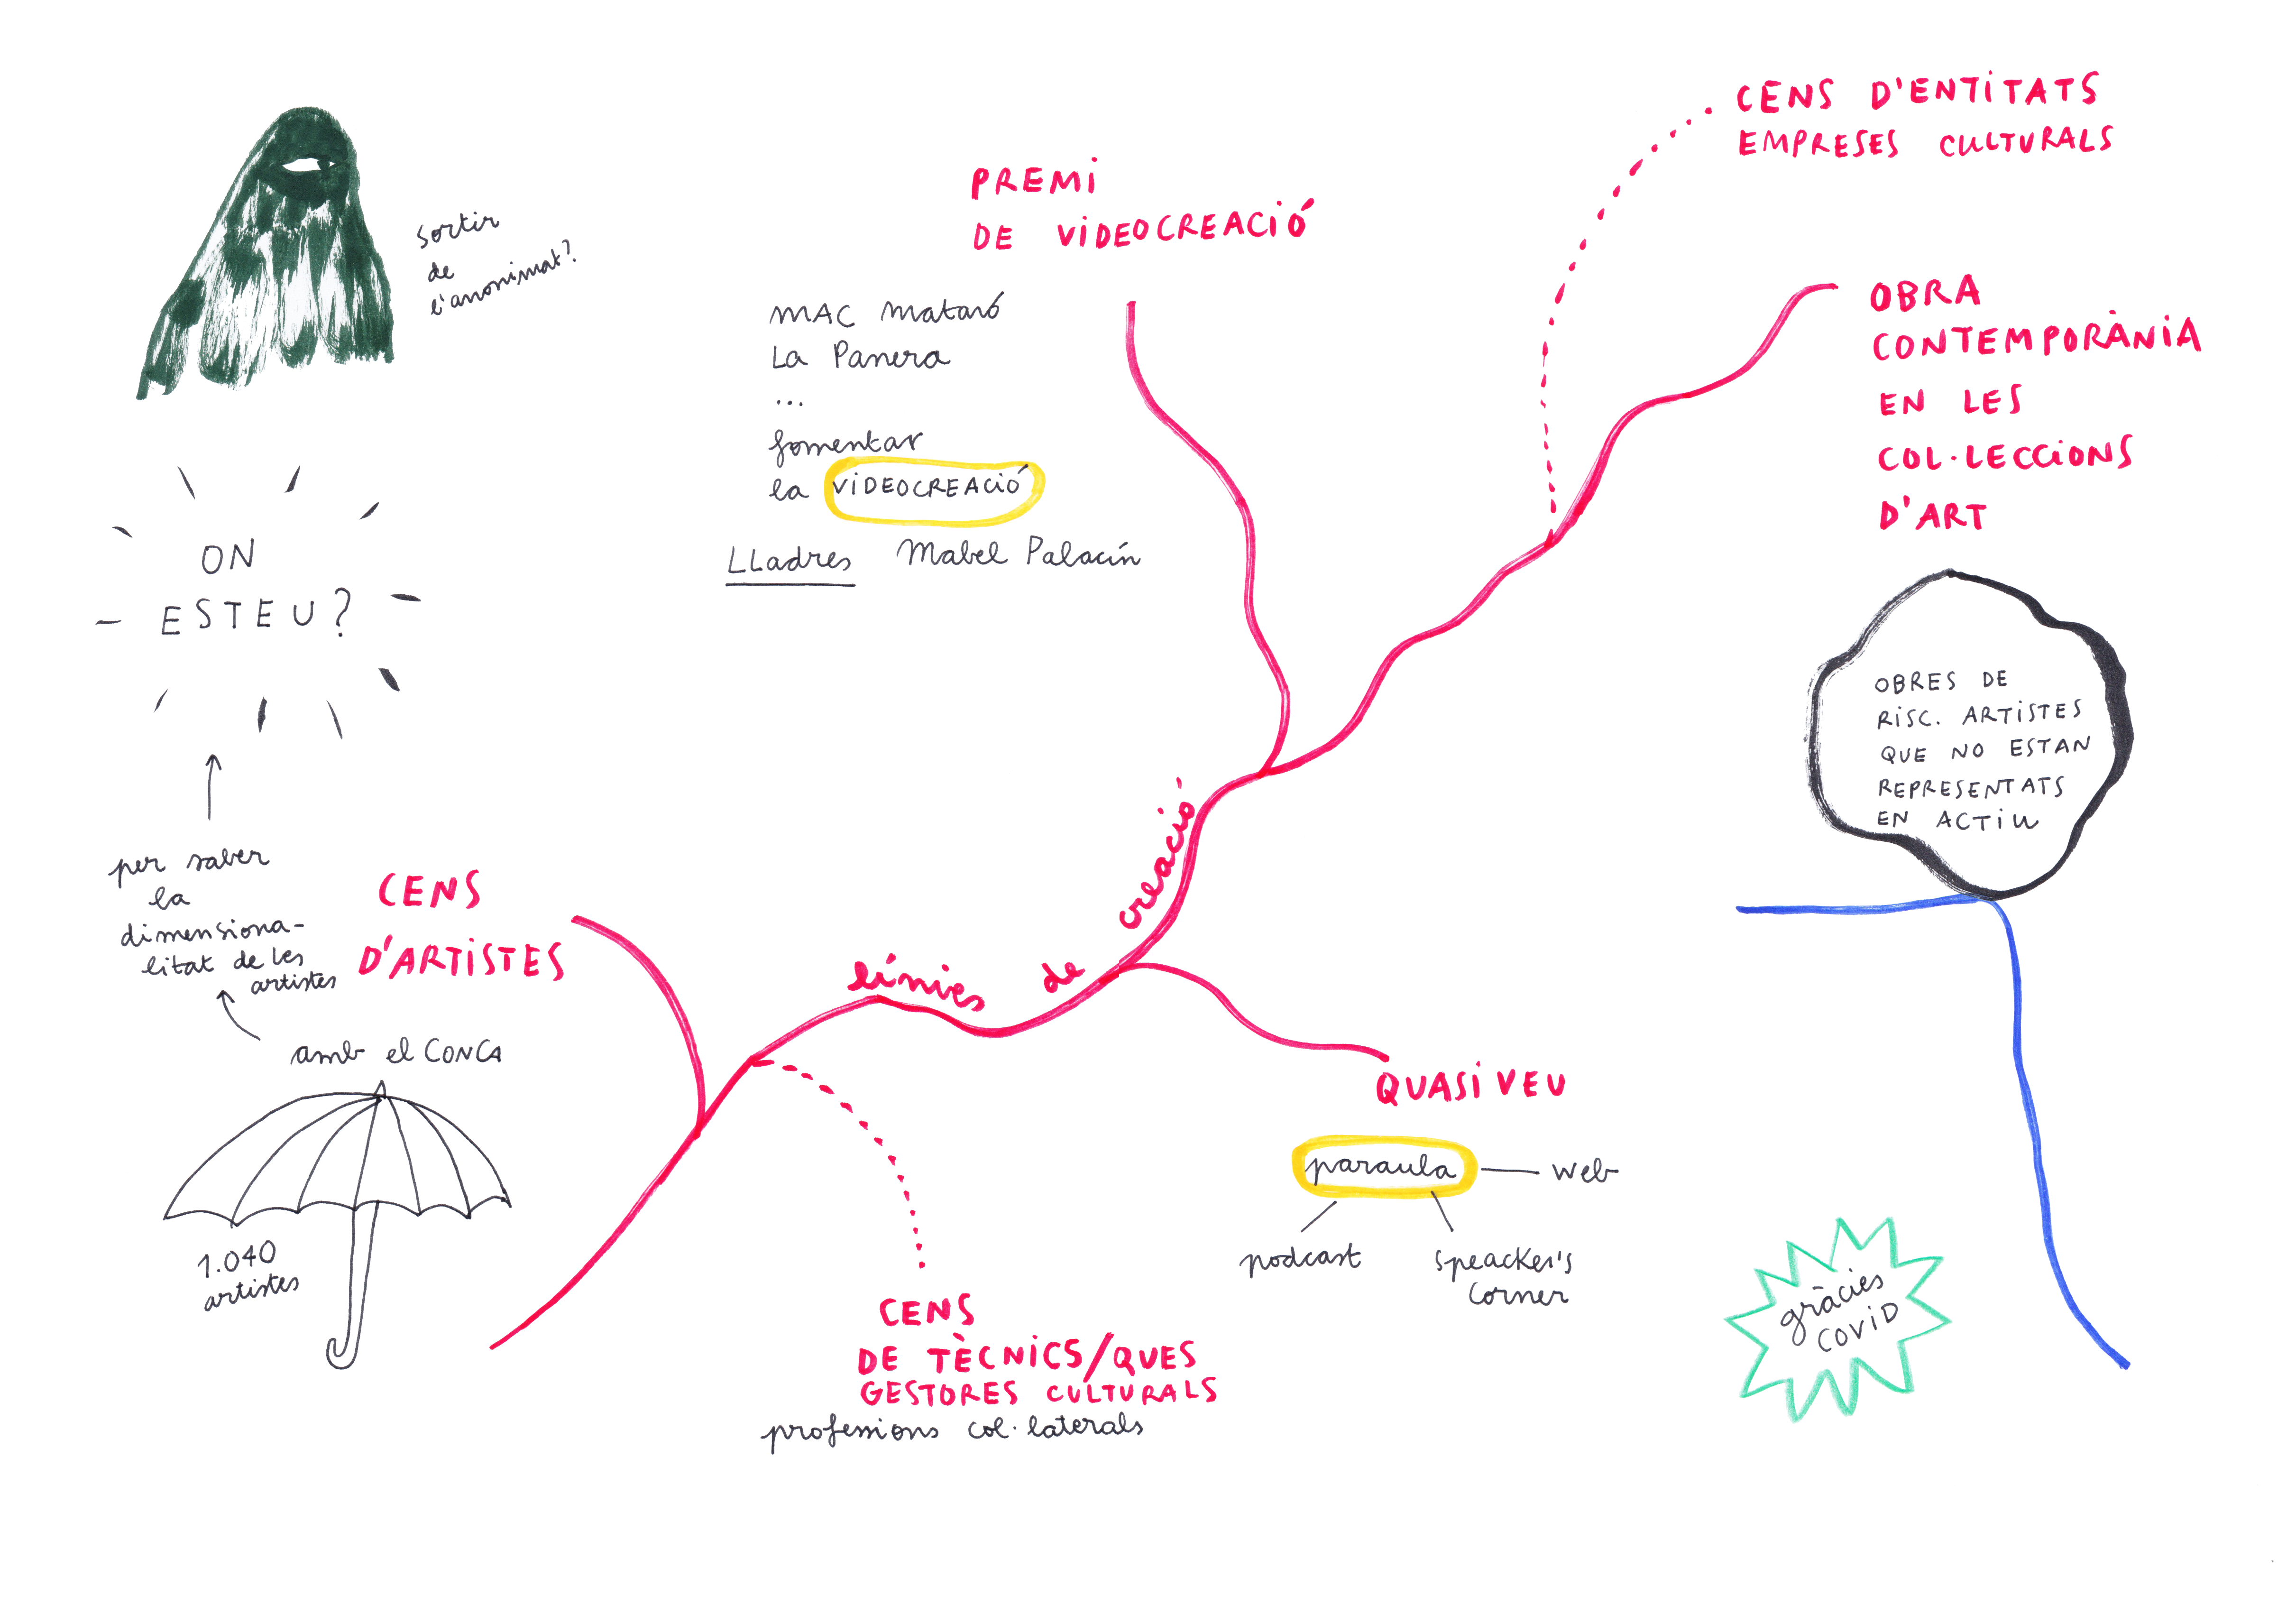 sortir
de
l'anonimat?
ON
ESTEU?
per saber
la
dimensiona-
litat de les
artistes
amb el CONCA
1.040
artistes
CENS
D'ARTISTES
PREMI
DE VIDEOCREACIÓ
MAC Mataró
La Panera
...
fomentar
la VIDEOCREACIÓ
LLadres Mabel Palacín
línies de creació
CENS
DE TÈCNICS/QUES
GESTORES CULTURALS
professions col·laterals
QUASI VEU
paraula web
podcast speacker's
corner
CENS D'ENTITATS
EMPRESES CULTURALS
OBRA
CONTEMPORÀNIA
EN LES
COL·LECCIONS
D'ART
OBRES DE
RISC. ARTISTES
QUE NO ESTAN
REPRESENTATS
EN ACTIU
gràcies
COVID